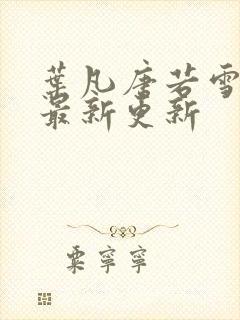 葉凡唐若雪
最新更新
粟寧寧